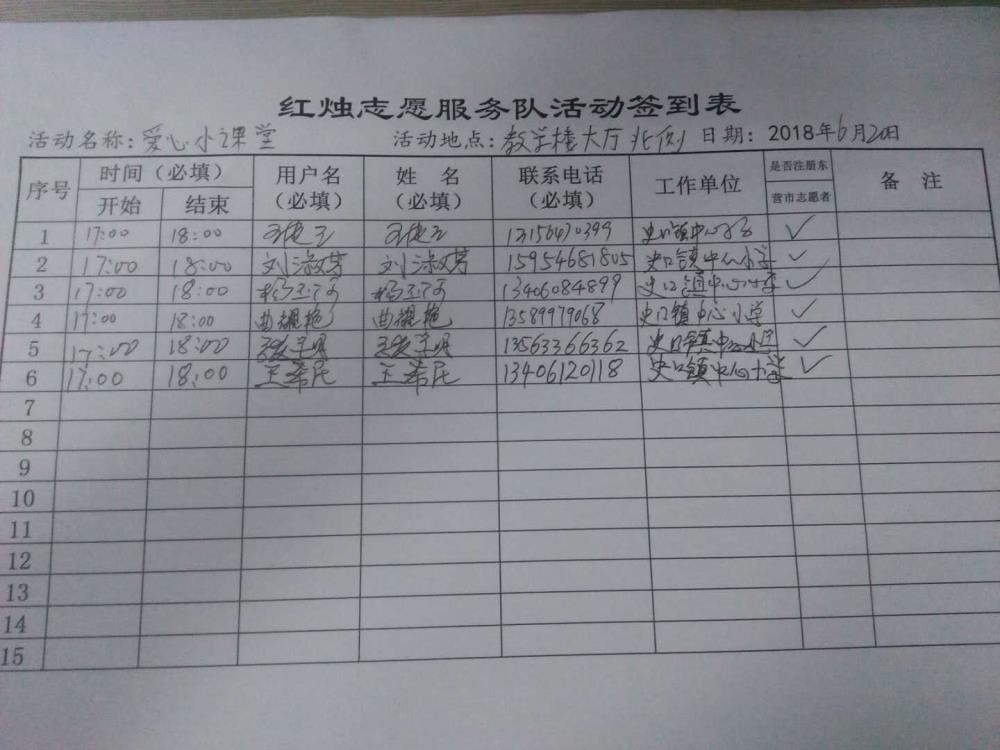 红烛志愿服务队活动签到表
活动名称：爱心小课堂 活动地点：教学楼大厅北侧 日期：2018年6月20日
序号 时间（必填） 用户名（必填） 姓名（必填） 联系电话（必填） 工作单位 是否注册东营市志愿者 备注
开始 结束
1 17:00 18:00 13156470399 史口镇中心小学 ✓
2 17:00 18:00 刘淑芳 刘淑芳 15954681805 史口镇中心小学 ✓
3 17:00 18:00 13406084899 史口镇中心小学 ✓
4 17:00 18:00 曲耀艳 曲耀艳 13589979068 史口镇中心小学 ✓
5 17:00 18:00 13563366362 史口镇中心小学 ✓
6 17:00 18:00 王希民 王希民 13406120118 史口镇中心小学 ✓
7
8
9
10
11
12
13
14
15